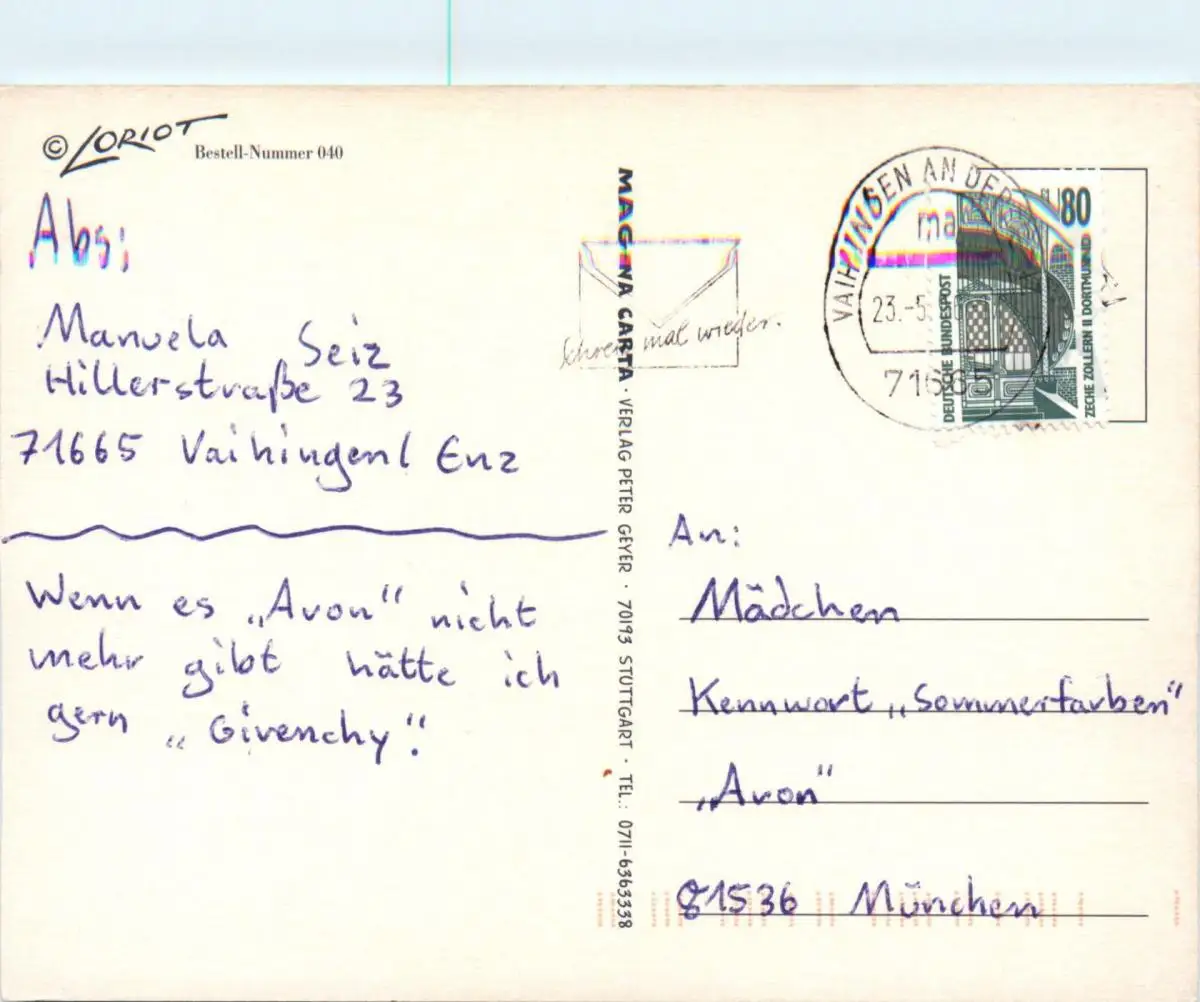 © LORIOT
Bestell-Nummer 040
Abs:
Manuela Seiz
Hillerstraße 23
71665 Vaihingen/ Enz
Wenn es „Avon“ nicht
mehr gibt hätte ich
gern „Givenchy“!
MAGNA CARTA · VERLAG PETER GEYER · 70193 STUTTGART · TEL.: 0711-6363338
mal wieder.
VAIHINGEN AN DER
23.-5.
71665
80
DEUTSCHE BUNDESPOST
ZECHE ZOLLERN II DORTMUND
An:
Mädchen
Kennwort „Sommerfarben“
„Avon“
81536 München